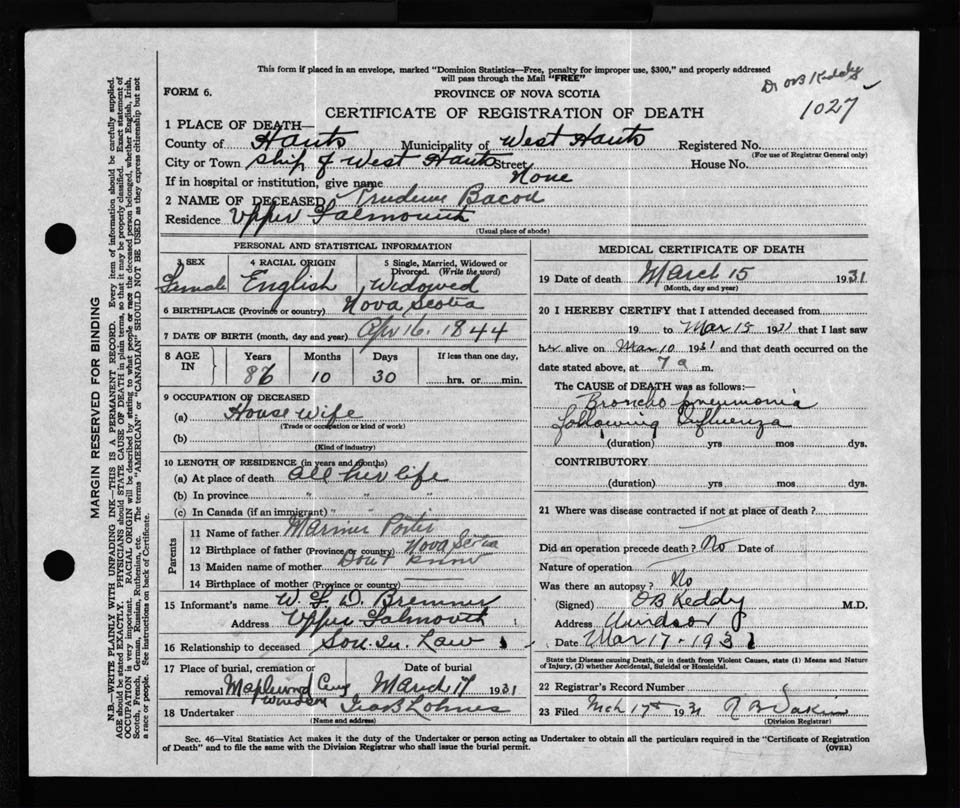 This form if placed in an envelope, marked "Dominion Statistics—Free, penalty for improper use, $300," and properly addressed
will pass through the Mail "FREE"
Dr OB Keddy
1027
FORM 6.
PROVINCE OF NOVA SCOTIA
CERTIFICATE OF REGISTRATION OF DEATH
1 PLACE OF DEATH—
County of Hants Municipality of West Hants Registered No.
(For use of Registrar General only)
City or Town ship of West Hants Street House No.
If in hospital or institution, give name None
2 NAME OF DECEASED Prudence Bacon
Residence Upper Falmouth
(Usual place of abode)
PERSONAL AND STATISTICAL INFORMATION
3 SEX 4 RACIAL ORIGIN 5 Single, Married, Widowed or Divorced. (Write the word)
Female English Widowed
6 BIRTHPLACE (Province or country) Nova Scotia
7 DATE OF BIRTH (month, day and year) Apr 16. 1844
8 AGE IN Years Months Days If less than one day,
86 10 30 hrs. or min.
9 OCCUPATION OF DECEASED
(a) House wife
(Trade or occupation or kind of work)
(b)
(Kind of industry)
10 LENGTH OF RESIDENCE (in years and months)
(a) At place of death all her life
(b) In province " " "
(c) In Canada (if an immigrant) " "
Parents
11 Name of father Porter
12 Birthplace of father (Province or country) Nova Scotia
13 Maiden name of mother Don't know
14 Birthplace of mother (Province or country)
15 Informant's name W. F. D. Bremner
Address Upper Falmouth
16 Relationship to deceased Son. In Law
17 Place of burial, cremation or Date of burial
removal Maplewood Cem Windsor March 17 1931
18 Undertaker Geo B Lohnes
(Name and address)
MEDICAL CERTIFICATE OF DEATH
19 Date of death March 15 1931
(Month, day and year)
20 I HEREBY CERTIFY that I attended deceased from
19 to Mar 15 1931 that I last saw
her alive on Mar 10 1931 and that death occurred on the
date stated above, at 7 a m.
The CAUSE of DEATH was as follows:
Broncho pneumonia
following Influenza
(duration) yrs mos dys.
CONTRIBUTORY
(duration) yrs. mos. dys.
21 Where was disease contracted if not at place of death?
Did an operation precede death? No Date of
Nature of operation
Was there an autopsy? No
(Signed) OB Keddy M.D.
Address Windsor
Date Mar 17 - 1931
State the Disease causing Death, or in death from Violent Causes, state (1) Means and Nature
of Injury, (2) whether Accidental, Suicidal or Homicidal.
22 Registrar's Record Number
23 Filed Mch 17th 1931
(Division Registrar)
Sec. 46—Vital Statistics Act makes it the duty of the Undertaker or person acting as Undertaker to obtain all the particulars required in the "Certificate of Registration
of Death" and to file the same with the Division Registrar who shall issue the burial permit.
(OVER)
MARGIN RESERVED FOR BINDING
N.B.—WRITE PLAINLY WITH UNFADING INK—THIS IS A PERMANENT RECORD. Every item of information should be carefully supplied.
AGE should be stated EXACTLY. PHYSICIANS should STATE CAUSE OF DEATH in plain terms, so that it may be properly classified. Exact statement of
OCCUPATION is very important. RACIAL ORIGIN will be described by stating to what people or race the deceased person belonged, whether English, Irish,
Scotch, French, German, Russian, Ruthenian, etc. The terms "AMERICAN" or "CANADIAN" SHOULD NOT BE USED as they express citizenship but not
a race or people. See instructions on back of Certificate.